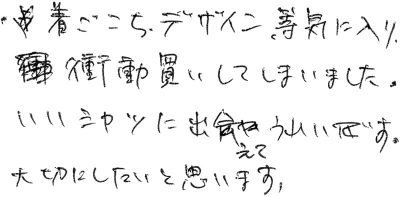 ・着ごこち、デザイン等気に入り、
衝動買いしてしまいました。
いいシャツに出会えてうれしいです。
大切にしたいと思います。